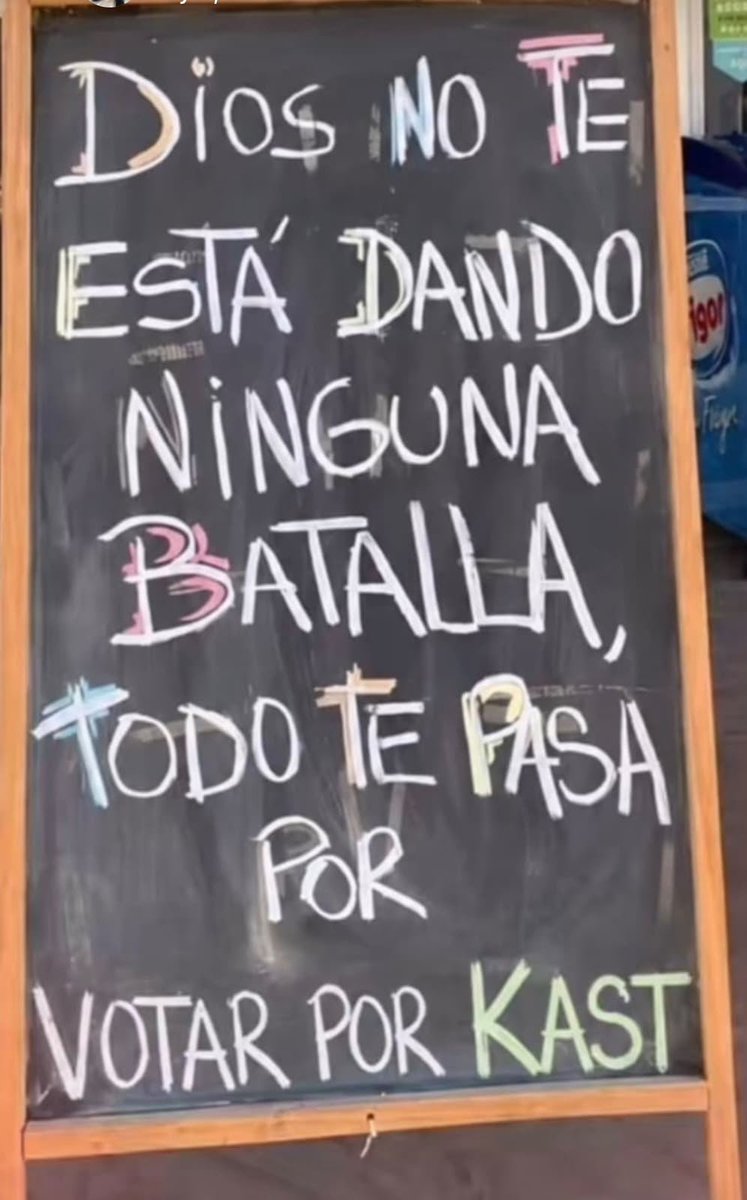 DiOS NO TE
ESTÁ DANDO
NiNGUNA
BATALLA,
TODO TE PASA
POR
VOTAR POR KAST
Nestlé